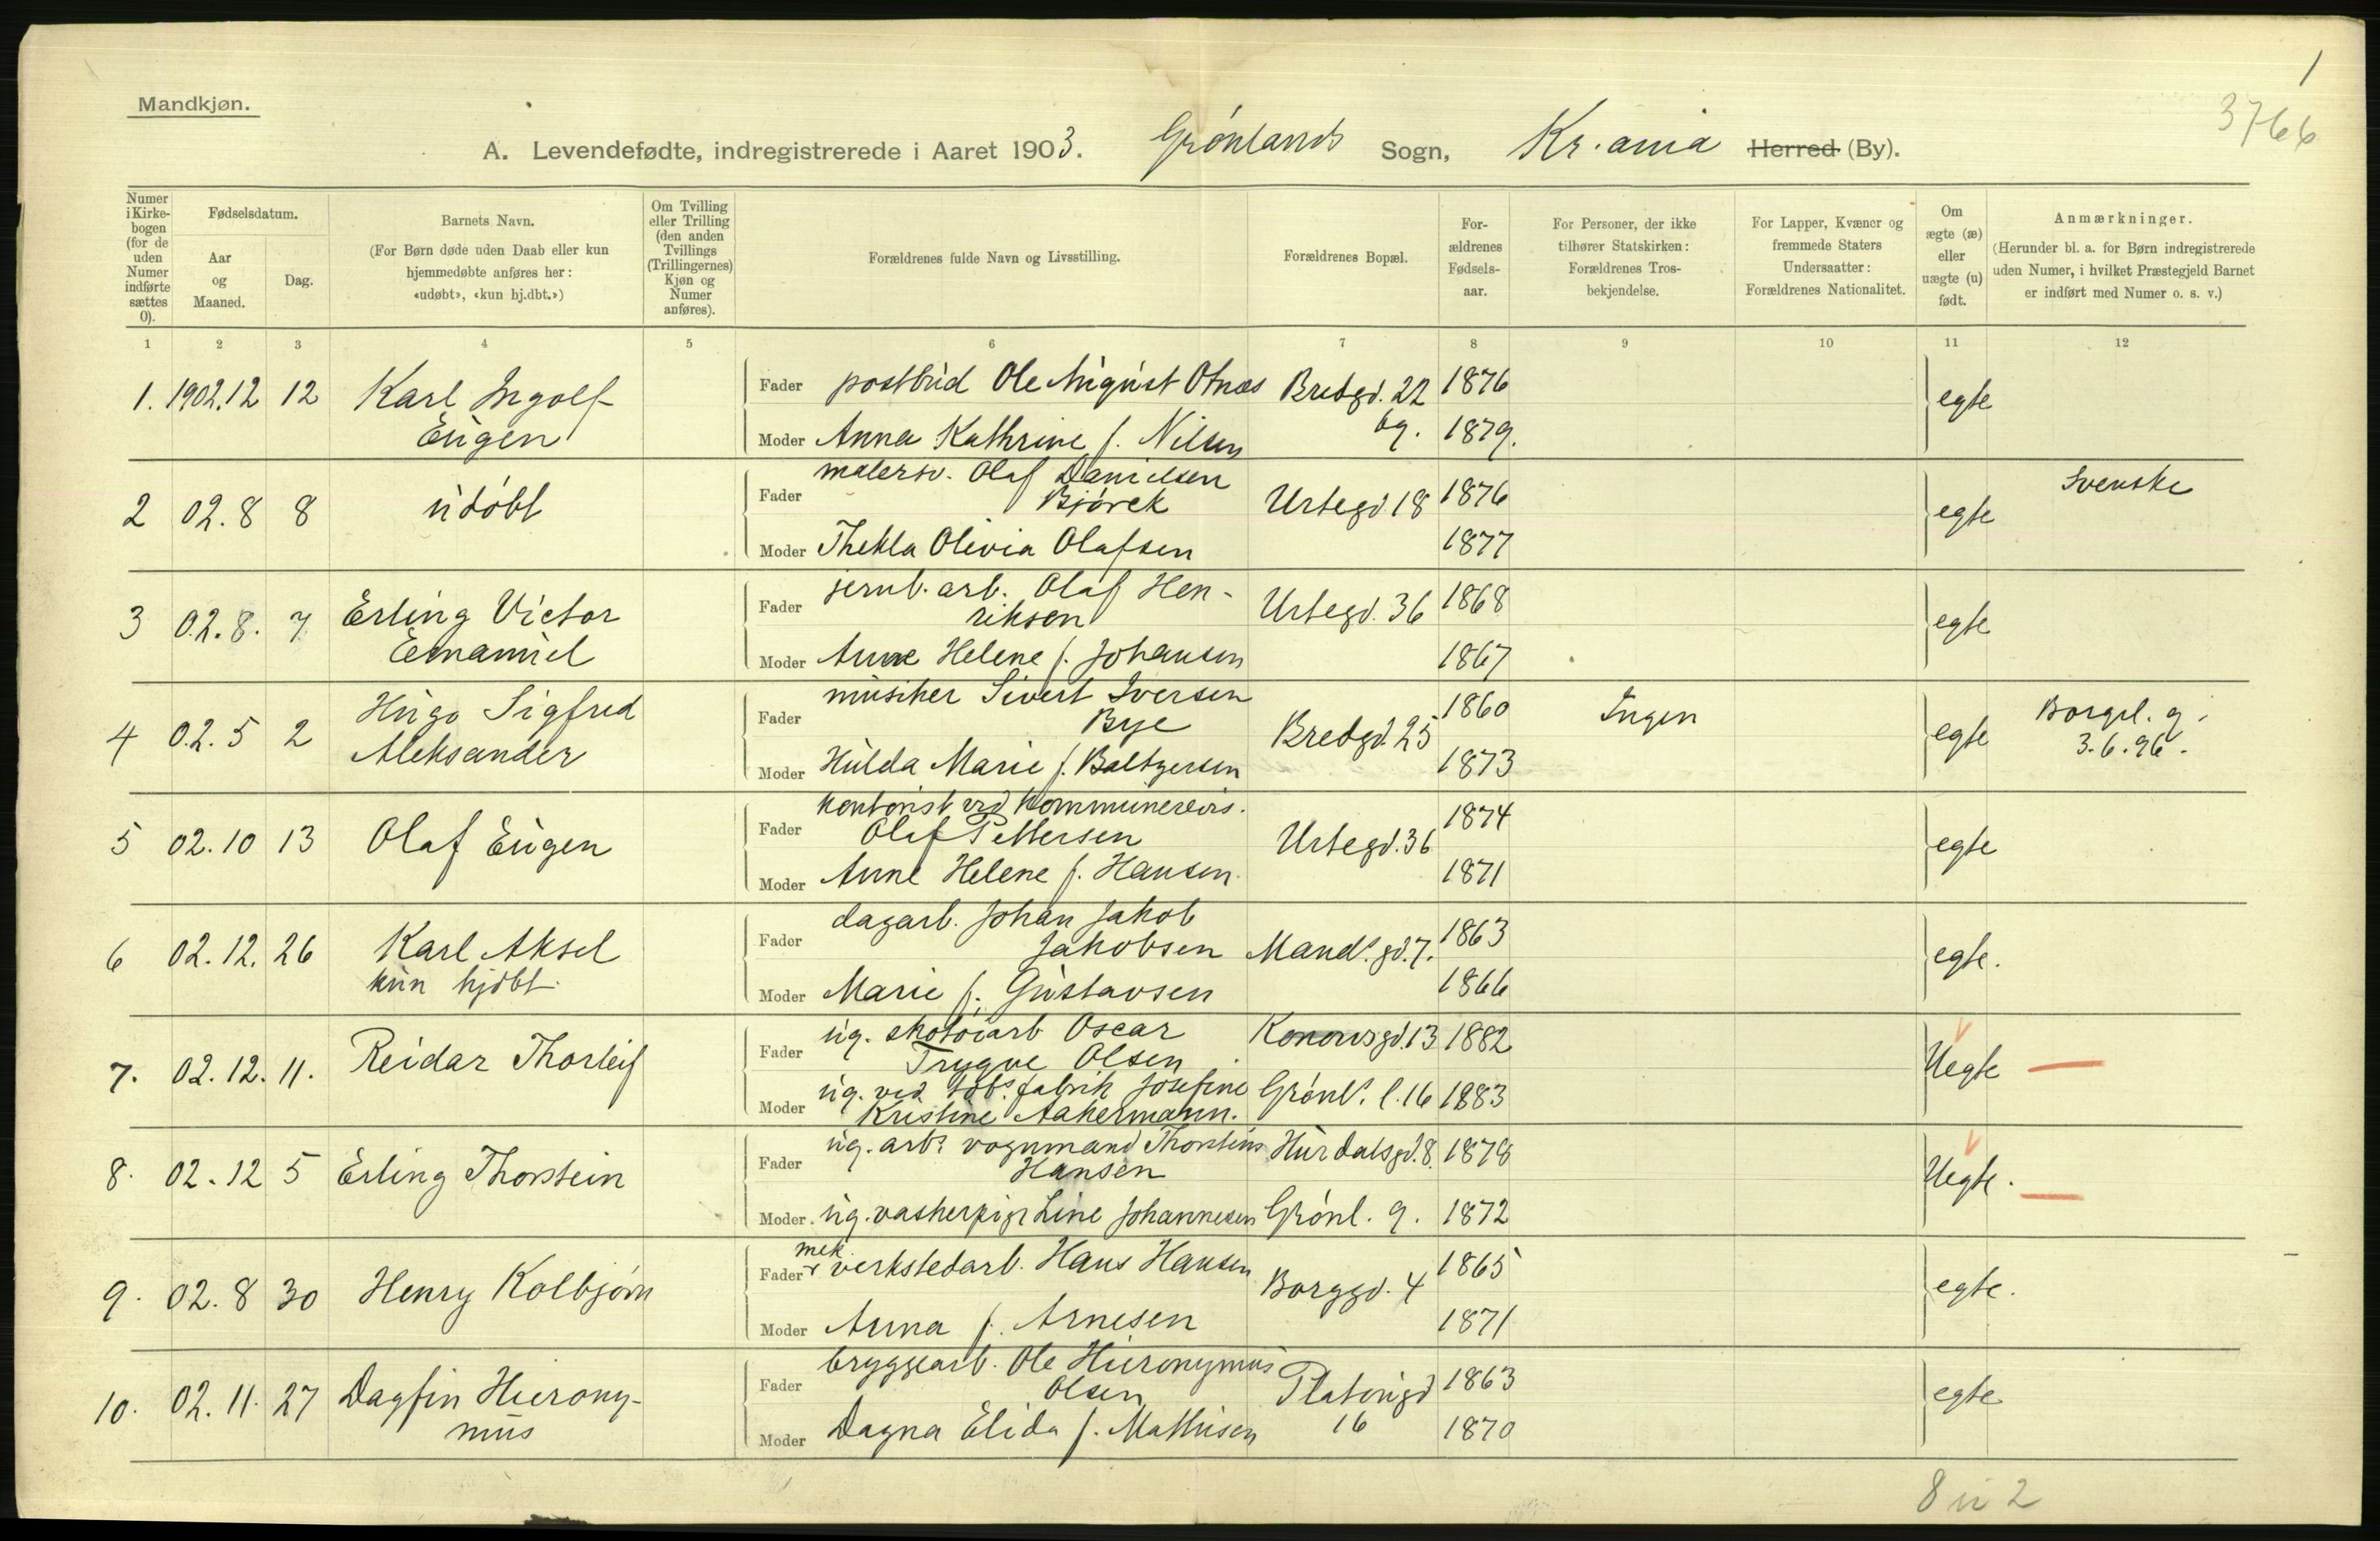 1
3766
Mandkjøn.
A. Levendefødte, indregistrerede i Aaret 1903. Grønlands Sogn, Kr.ania Herred (By).
Numer i Kirkebogen (for de uden Numer indførte sættes 0).
Fødselsdatum.
Aar og Maaned.
Dag.
Barnets Navn.
(For Børn døde uden Daab eller kun hjemmedøbte anføres her: «udøbt», «kun hj.dbt.»)
Om Tvilling eller Trilling (den anden Tvillings (Trillingernes) Kjøn og Numer anføres).
Forældrenes fulde Navn og Livsstilling.
Forældrenes Bopæl.
Forældrenes Fødselsaar.
For Personer, der ikke tilhører Statskirken: Forældrenes Trosbekjendelse.
For Lapper, Kvæner og fremmede Staters Undersaatter: Forældrenes Nationalitet.
Om ægte (æ) eller uægte (u) født.
Anmærkninger.
(Herunder bl. a. for Børn indregistrerede uden Numer, i hvilket Præstegjeld Barnet er indført med Numer o. s. v.)
1 2 3 4 5 6 7 8 9 10 11 12
1. 1902.12 12 Karl Ingolf Eugen
Fader postbud Ole August Otnæs Bredgd. 22 1876 egte
Moder Anna Kathrine f. Nilsen bg. 1879.
2 02.8 8 udøbt
Fader malersv. Olaf Danielsen Bjørck Urtegd. 18 1876 egte Svenske
Moder Thekla Olivia Olafsen 1877
3 02.8. 7 Erling Victor Emanuel
Fader jernb. arb. Olaf Henriksen Urtegd. 36 1868 egte
Moder Anne Helene f. Johansen 1867
4 02.5 2 Hugo Sigfred Aleksander
Fader musiker Sivert Iversen Bye Bredgd. 25 1860 Ingen egte Borgel. g. 3.6.96.
Moder Hulda Marie f. Baltzersen 1873
5 02.10 13 Olaf Eugen
Fader kontorist ved Kommunerevis. Olaf Pettersen Urtegd. 36 1874 egte
Moder Anne Helene f. Hansen. 1871
6 02.12. 26 Karl Aksel kun hjdbt.
Fader dagarb. Johan Jakob Jakobsen Mands. gd. 7. 1863 egte.
Moder Marie f. Gustavsen 1866
7. 02.12. 11. Reidar Thorleif
Fader ug. skotøiarb Oscar Trygve Olsen Konowsgd. 13 1882 Uegte
Moder ug. ved tobs. fabrik Josefine Kristine Aakermann. Grønls. l. 16 1883
8. 02.12 5 Erling Thorstein
Fader ug. arb. vognmand Thorstein Hansen Hurdalsgd. 8. 1878 Uegte.
Moder ug. vaskerpige Line Johannesen Grønl. 9. 1872
9. 02.8 30 Henry Kolbjørn
Fader mek. verkstedarb. Hans Hansen Borggd. 4 1865 egte.
Moder Anna f. Arnesen 1871
10. 02.11. 27 Dagfin Hieronymus
Fader bryggearb. Ole Hieronymus Olsen Platougd 16 1863 egte
Moder Dagna Elida f. Mathisen 1870
8 u 2